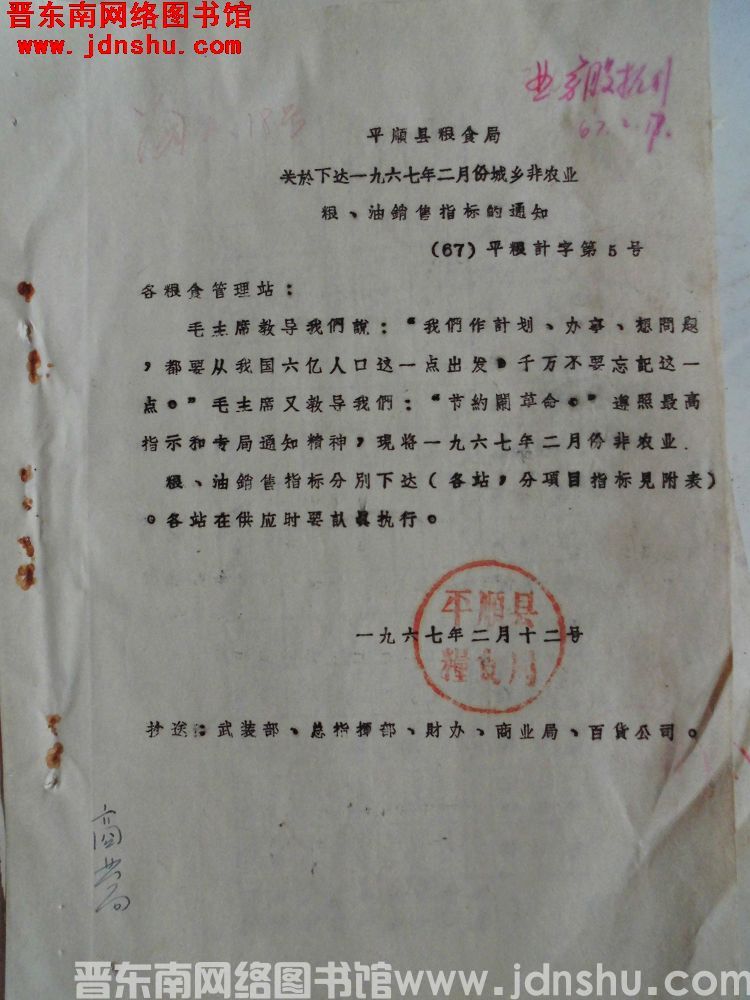 晋东南网络图书馆
www.jdnshu.com
67.2.17.
平顺县粮食局
关於下达一九六七年二月份城乡非农业
粮、油銷售指标的通知
(67)平粮計字第5号
各粮食管理站：
毛主席教导我們說：“我們作計划、办事、想問題
，都要从我国六亿人口这一点出发，千万不要忘記这一
点。”毛主席又教导我們：“节約鬧革命。”遵照最高
指示和专局通知精神，現将一九六七年二月份非农业
粮、油銷售指标分別下达（各站，分項目指标見附表）
。各站在供应时要訊眞执行。
平順县
糧食局
一九六七年二月十二号
抄送：武装部、总指揮部、財办、商业局、百貨公司。
商业局
晋东南网络图书馆www.jdnshu.com